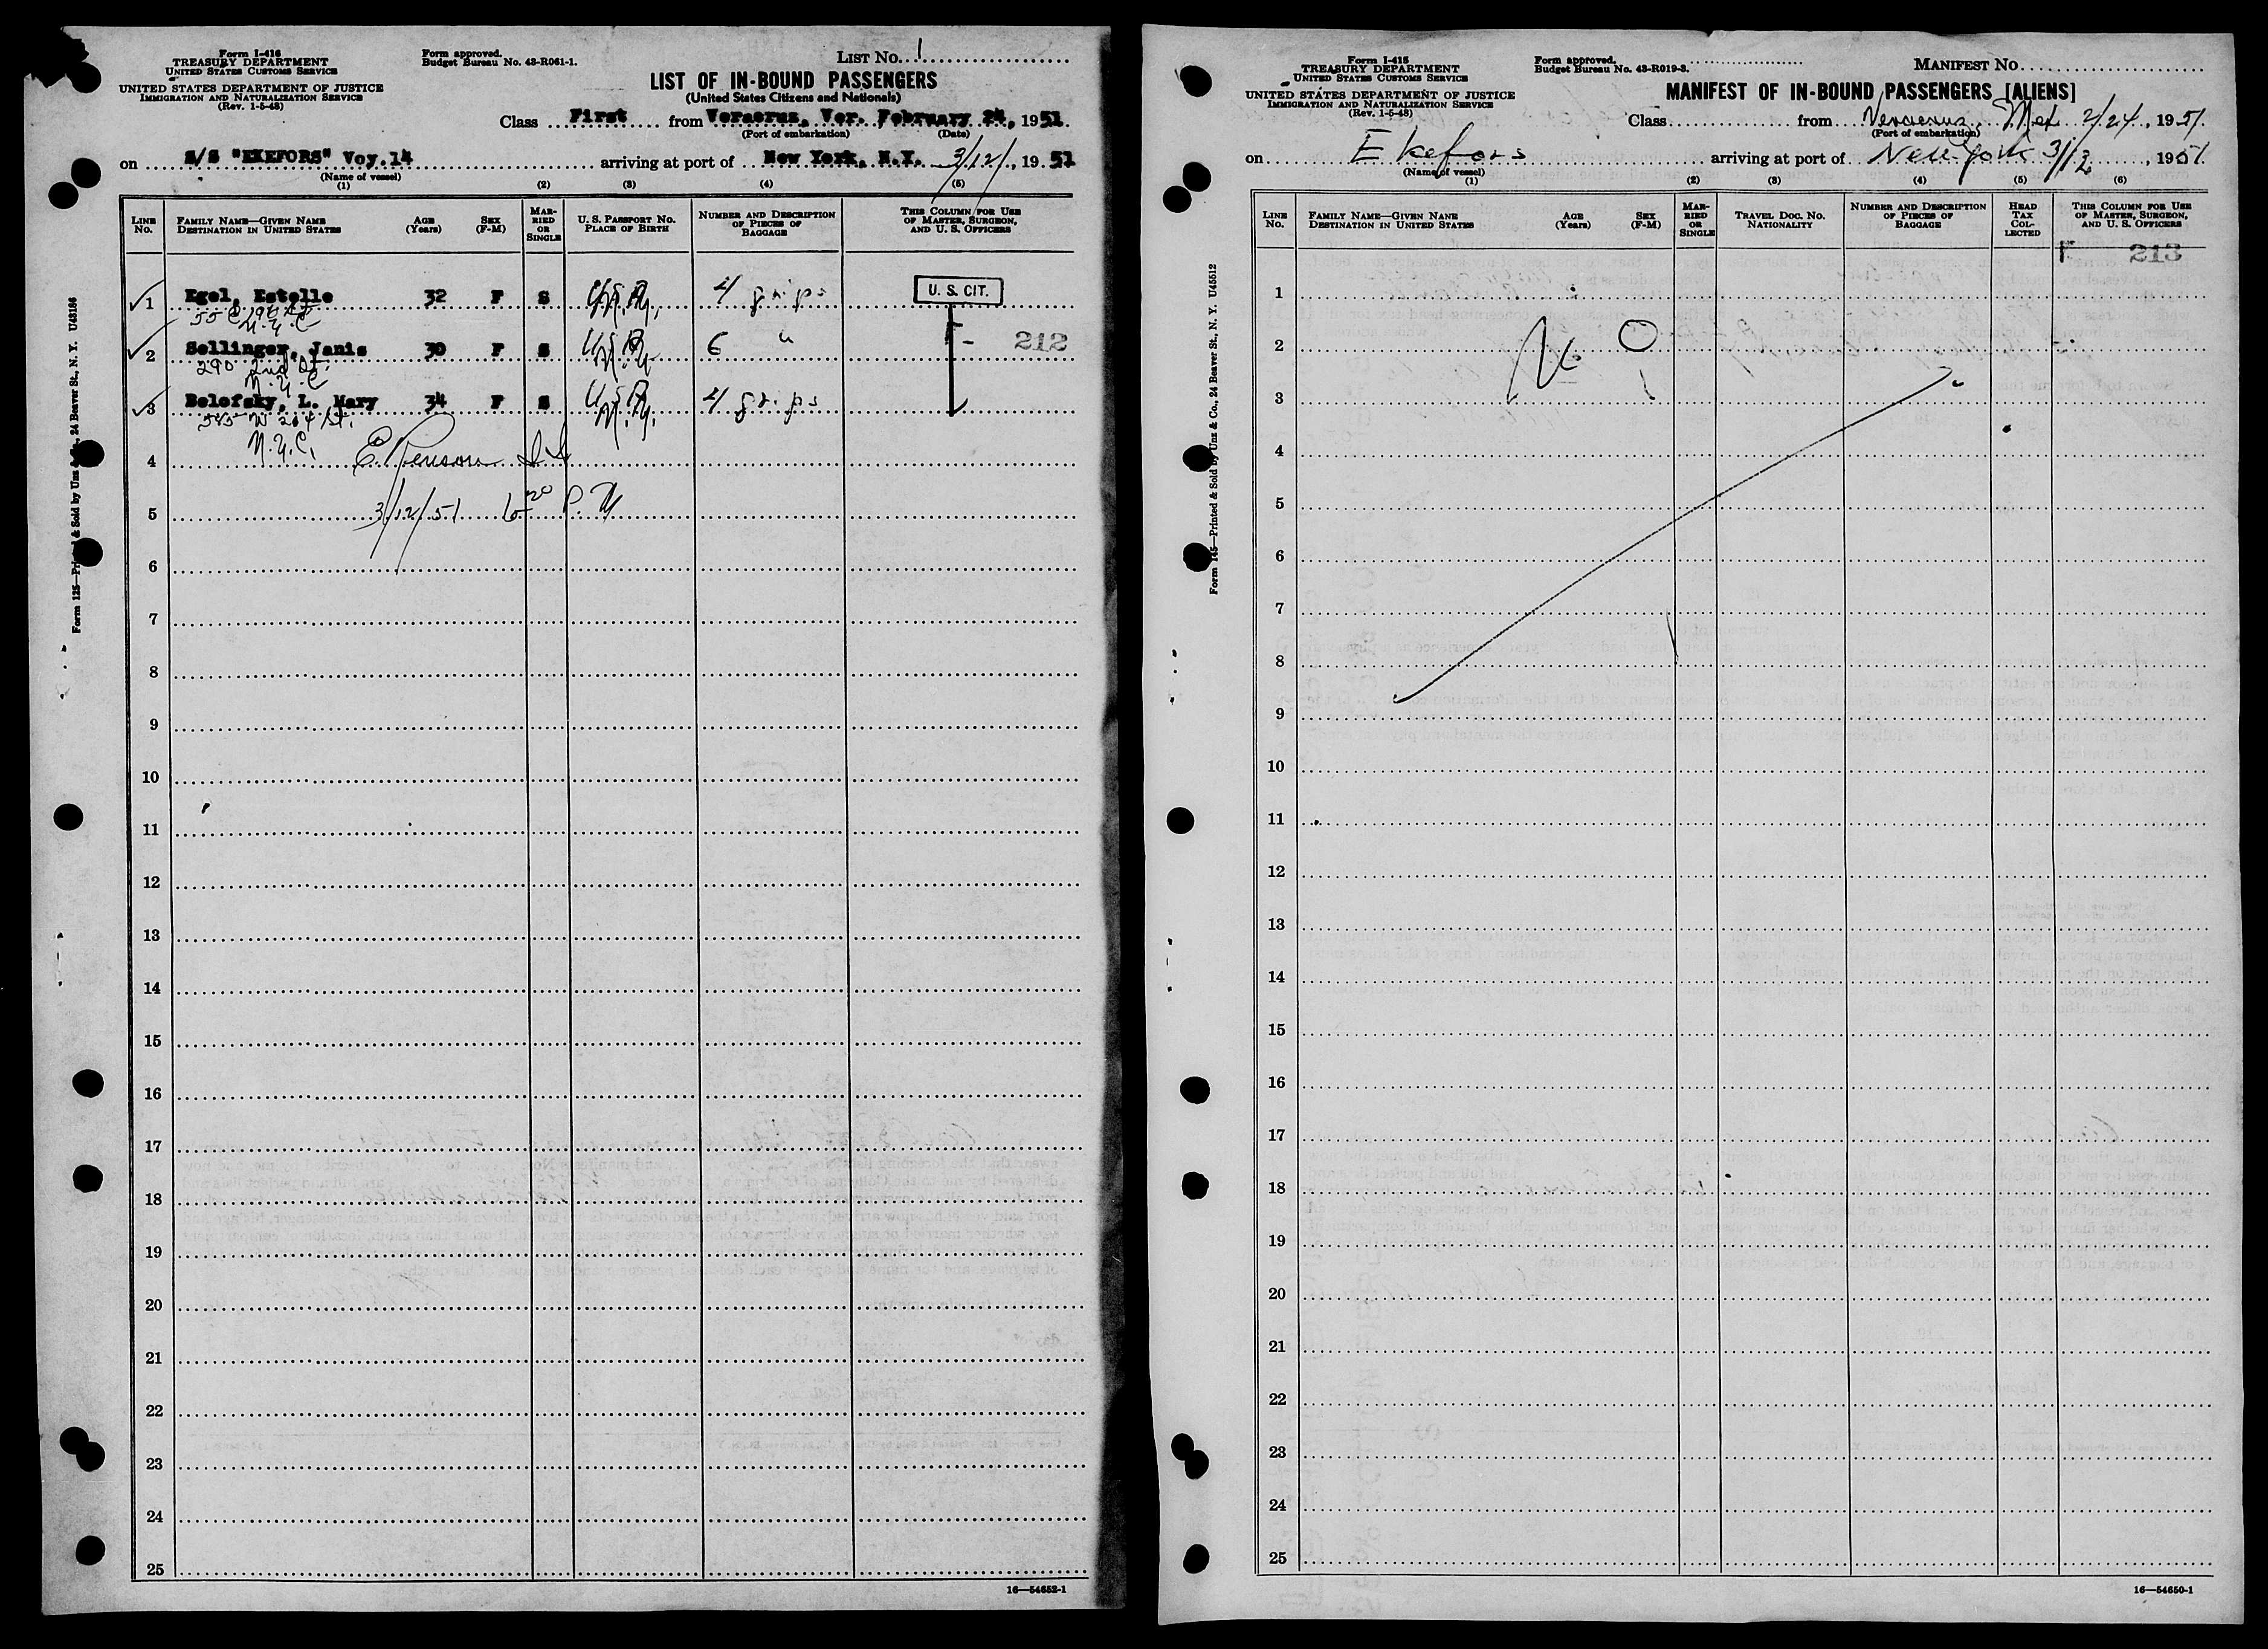 Form I-416
TREASURY DEPARTMENT
UNITED STATES CUSTOMS SERVICE
UNITED STATES DEPARTMENT OF JUSTICE
IMMIGRATION AND NATURALIZATION SERVICE
(Rev. 1-5-48)
Form approved.
Budget Bureau No. 43-R061-1.
LIST No. 1
LIST OF IN-BOUND PASSENGERS
(United States Citizens and Nationals)
Class First from Veracruz, Ver. February 24, 1951
(Port of embarkation) (Date)
on S/S "EKEFORS" Voy.14 arriving at port of New York, N.Y. 3/12/, 1951
(Name of vessel)
(1) (2) (3) (4) (5)
LINE No.
FAMILY NAME—GIVEN NAME
DESTINATION IN UNITED STATES
AGE (Years)
SEX (F-M)
MARRIED OR SINGLE
U. S. PASSPORT No.
PLACE OF BIRTH
NUMBER AND DESCRIPTION OF PIECES OF BAGGAGE
THIS COLUMN FOR USE OF MASTER, SURGEON, AND U. S. OFFICERS
1 Egel, Estelle 32 F S 4 grips U. S. CIT.
N.Y.C
2 Sellinger, Janis 30 F S 6 " 212
290 2nd St.
N.Y.C
3 Belofsky, L. Mary 34 F S 4 grips
585 W 204 St.
N.Y.C.
4
3/12/51 6 20 P.M
5
6
7
8
9
10
11
12
13
14
15
16
17
18
19
20
21
22
23
24
25
16—54652-1
Form 125—Printed & Sold by Unz & Co., 24 Beaver St., N. Y. U48186
Form I-415
TREASURY DEPARTMENT
UNITED STATES CUSTOMS SERVICE
UNITED STATES DEPARTMENT OF JUSTICE
IMMIGRATION AND NATURALIZATION SERVICE
(Rev. 1-5-48)
Form approved.
Budget Bureau No. 43-R019-3.
MANIFEST No.
MANIFEST OF IN-BOUND PASSENGERS [ALIENS]
Class from Veracruz, Mex 2/24, 1951
(Port of embarkation)
on Ekefors arriving at port of New York 3/12, 1951
(Name of vessel)
(1) (2) (3) (4) (5) (6)
LINE No.
FAMILY NAME—GIVEN NAME
DESTINATION IN UNITED STATES
AGE (Years)
SEX (F-M)
MARRIED OR SINGLE
TRAVEL DOC. No.
NATIONALITY
NUMBER AND DESCRIPTION OF PIECES OF BAGGAGE
HEAD TAX COLLECTED
THIS COLUMN FOR USE OF MASTER, SURGEON, AND U. S. OFFICERS
213
1
2
3
4
5
6
7
8
9
10
11
12
13
14
15
16
17
18
19
20
21
22
23
24
25
16—54650-1
Form 145—Printed & Sold by Unz & Co., 24 Beaver St., N. Y. U45512